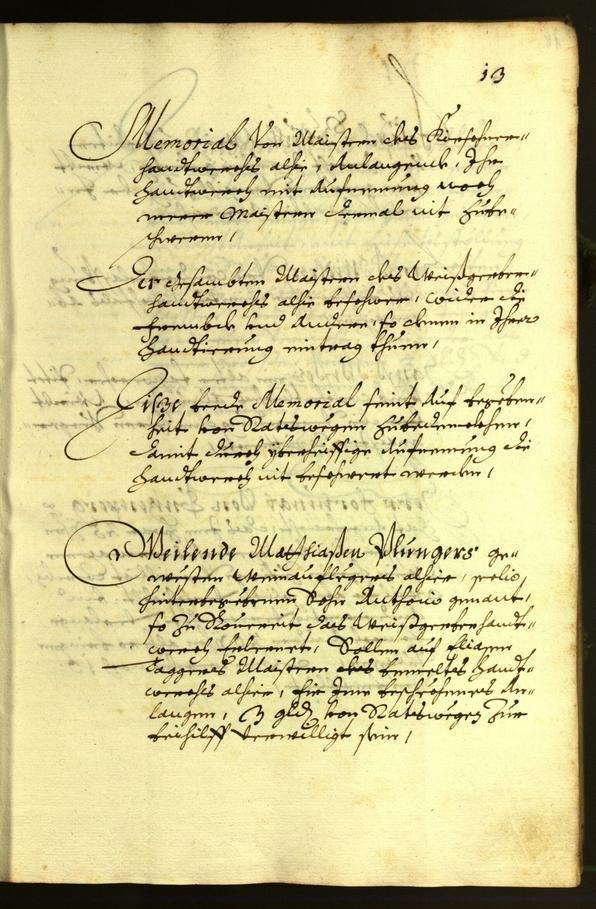 13
Memorial Von Maistern des Kirschner-
handtwerchs alhie, Anlangendt, Ihr
handtwerch mit Aufnemung noch
merer Maistern dermal nit zube-
schweren,
Der gesambten Maistern des Weißgerber-
handtwerchs alhie beschwer, wider die
frembde und Andere, so denen in Ihrer
handtierung eintrag thuen,
Dise beede Memorial seint Auf begeben-
heit von Ratswegen zubedenckhen,
damit durch yberheiffige Aufnemung die
handtwerch nit beschwert werden,
Weilende Mathiaßen Plungers ge-
westen Weinauflegers alhier, selig
hinterlaßenen Sohn Anthoni genant,
so zu das Weißgerber handt-
werch lehrnet, Sollen auf
Maistern des bemeltes handt-
werchs alhier, für Ime beschehenes An-
langen, 3 gld von Ratswegen zur
beihilff verwilligt sein,